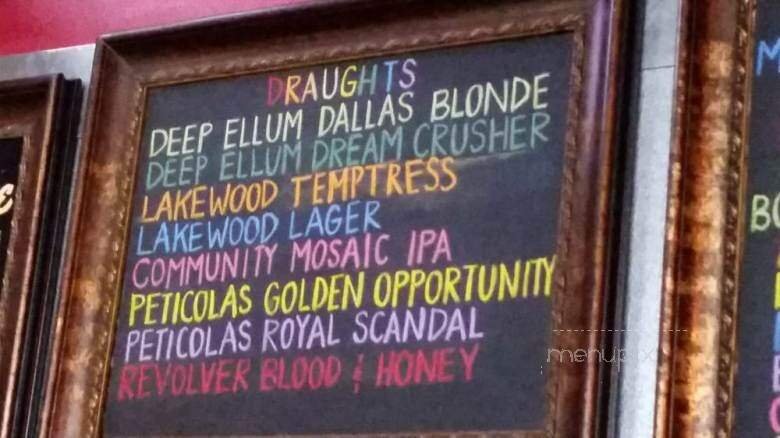 DRAUGHTS
DEEP ELLUM DALLAS BLONDE
DEEP ELLUM DREAM CRUSHER
LAKEWOOD TEMPTRESS
LAKEWOOD LAGER
COMMUNITY MOSAIC IPA
PETICOLAS GOLDEN OPPORTUNITY
PETICOLAS ROYAL SCANDAL
REVOLVER BLOOD & HONEY